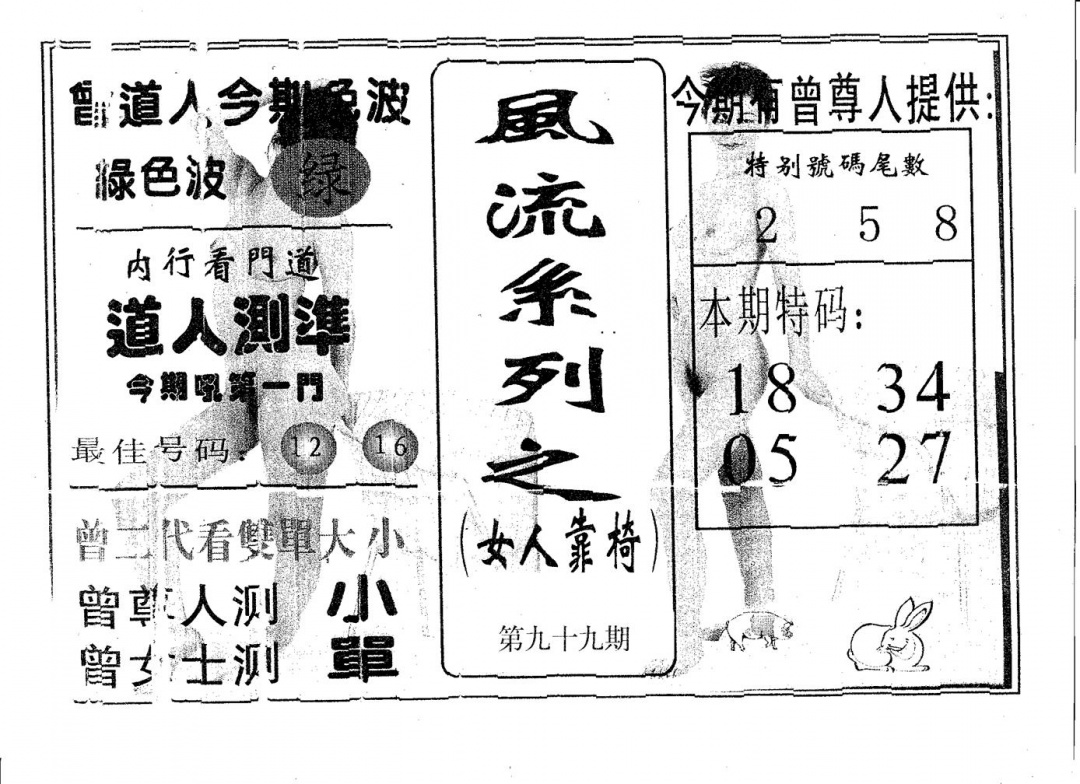 曾道人今期色波
綠色波 绿
内行看門道
道人測準
今期吼第一門
最佳号码: 12 16
曾二代看雙單大小
曾尊人测 小
曾女士测 單
風流系列之
(女人靠椅)
第九十九期
今期有曾尊人提供:
特别號碼尾數
2 5 8
本期特码:
18 34
05 27